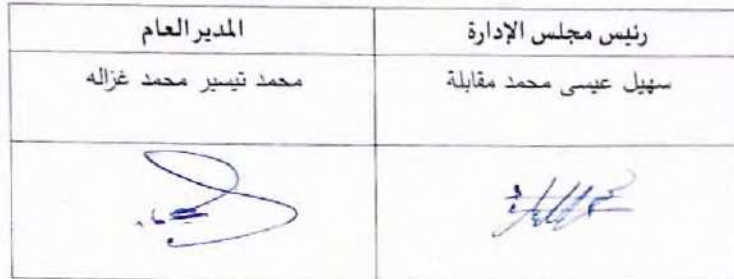 رئيس مجلس الإدارة
المدير العام
سهيل عيسى محمد مقابلة
محمد تيسير محمد غزاله